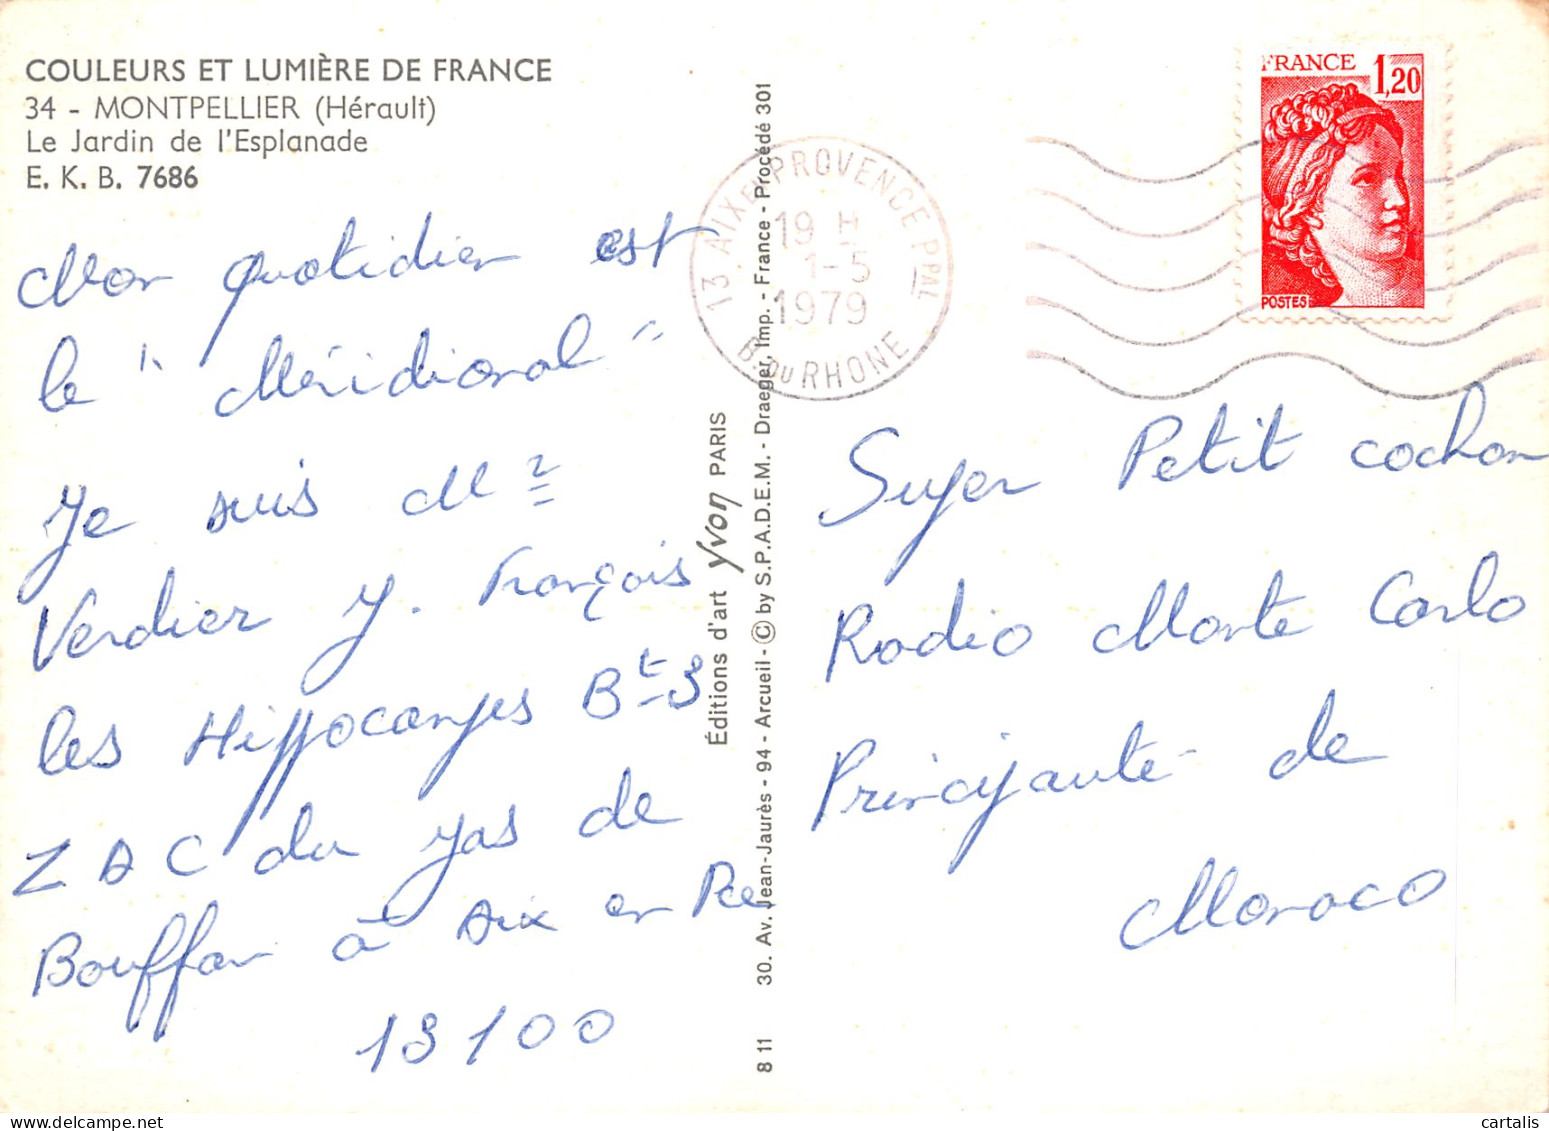 COULEURS ET LUMIÈRE DE FRANCE
34 - MONTPELLIER (Hérault)
Le Jardin de l'Esplanade
E. K. B. 7686
Mon quotidien est
le "Méridional"
Je suis Mr
Verdier J. François
les Hippocampes Bt 3
ZAC du Jas de
Bouffan à Aix en Pce
13100
Éditions d'art Yvon PARIS
30. Av. Jean-Jaurès - 94 - Arcueil - © by S.P.A.D.E.M. - Draeger, Imp. - France - Procédé 301
8 11
13 AIX EN PROVENCE PPAL
19 H
1-5
1979
B. DU RHONE
FRANCE 1,20
POSTES
Super Petit cochon
Radio Monte Carlo
Principauté de
Monaco
cartalis